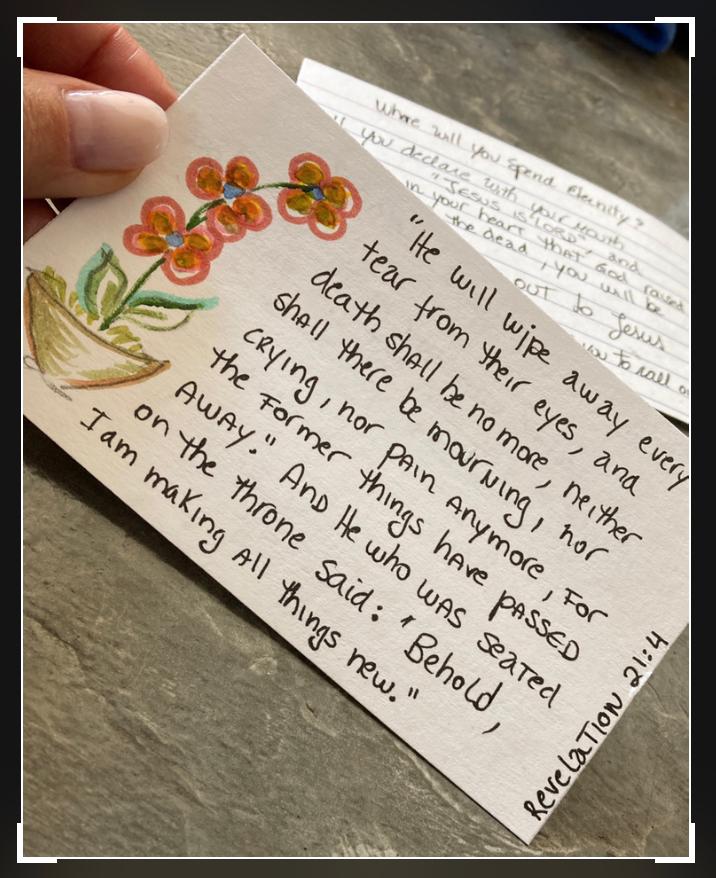 "He will wipe away every
tear from their eyes, and
death shall be no more, neither
shall there be mourning, nor
crying, nor pain anymore, for
the former things have passed
away." And He who was seated
on the throne said: "Behold,
I am making all things new."
Revelation 21:4
Where will you spend eternity?
you declare with your mouth
"Jesus is LORD", and
in your heart that God raised
the dead, you will be
OUT to Jesus
you to call